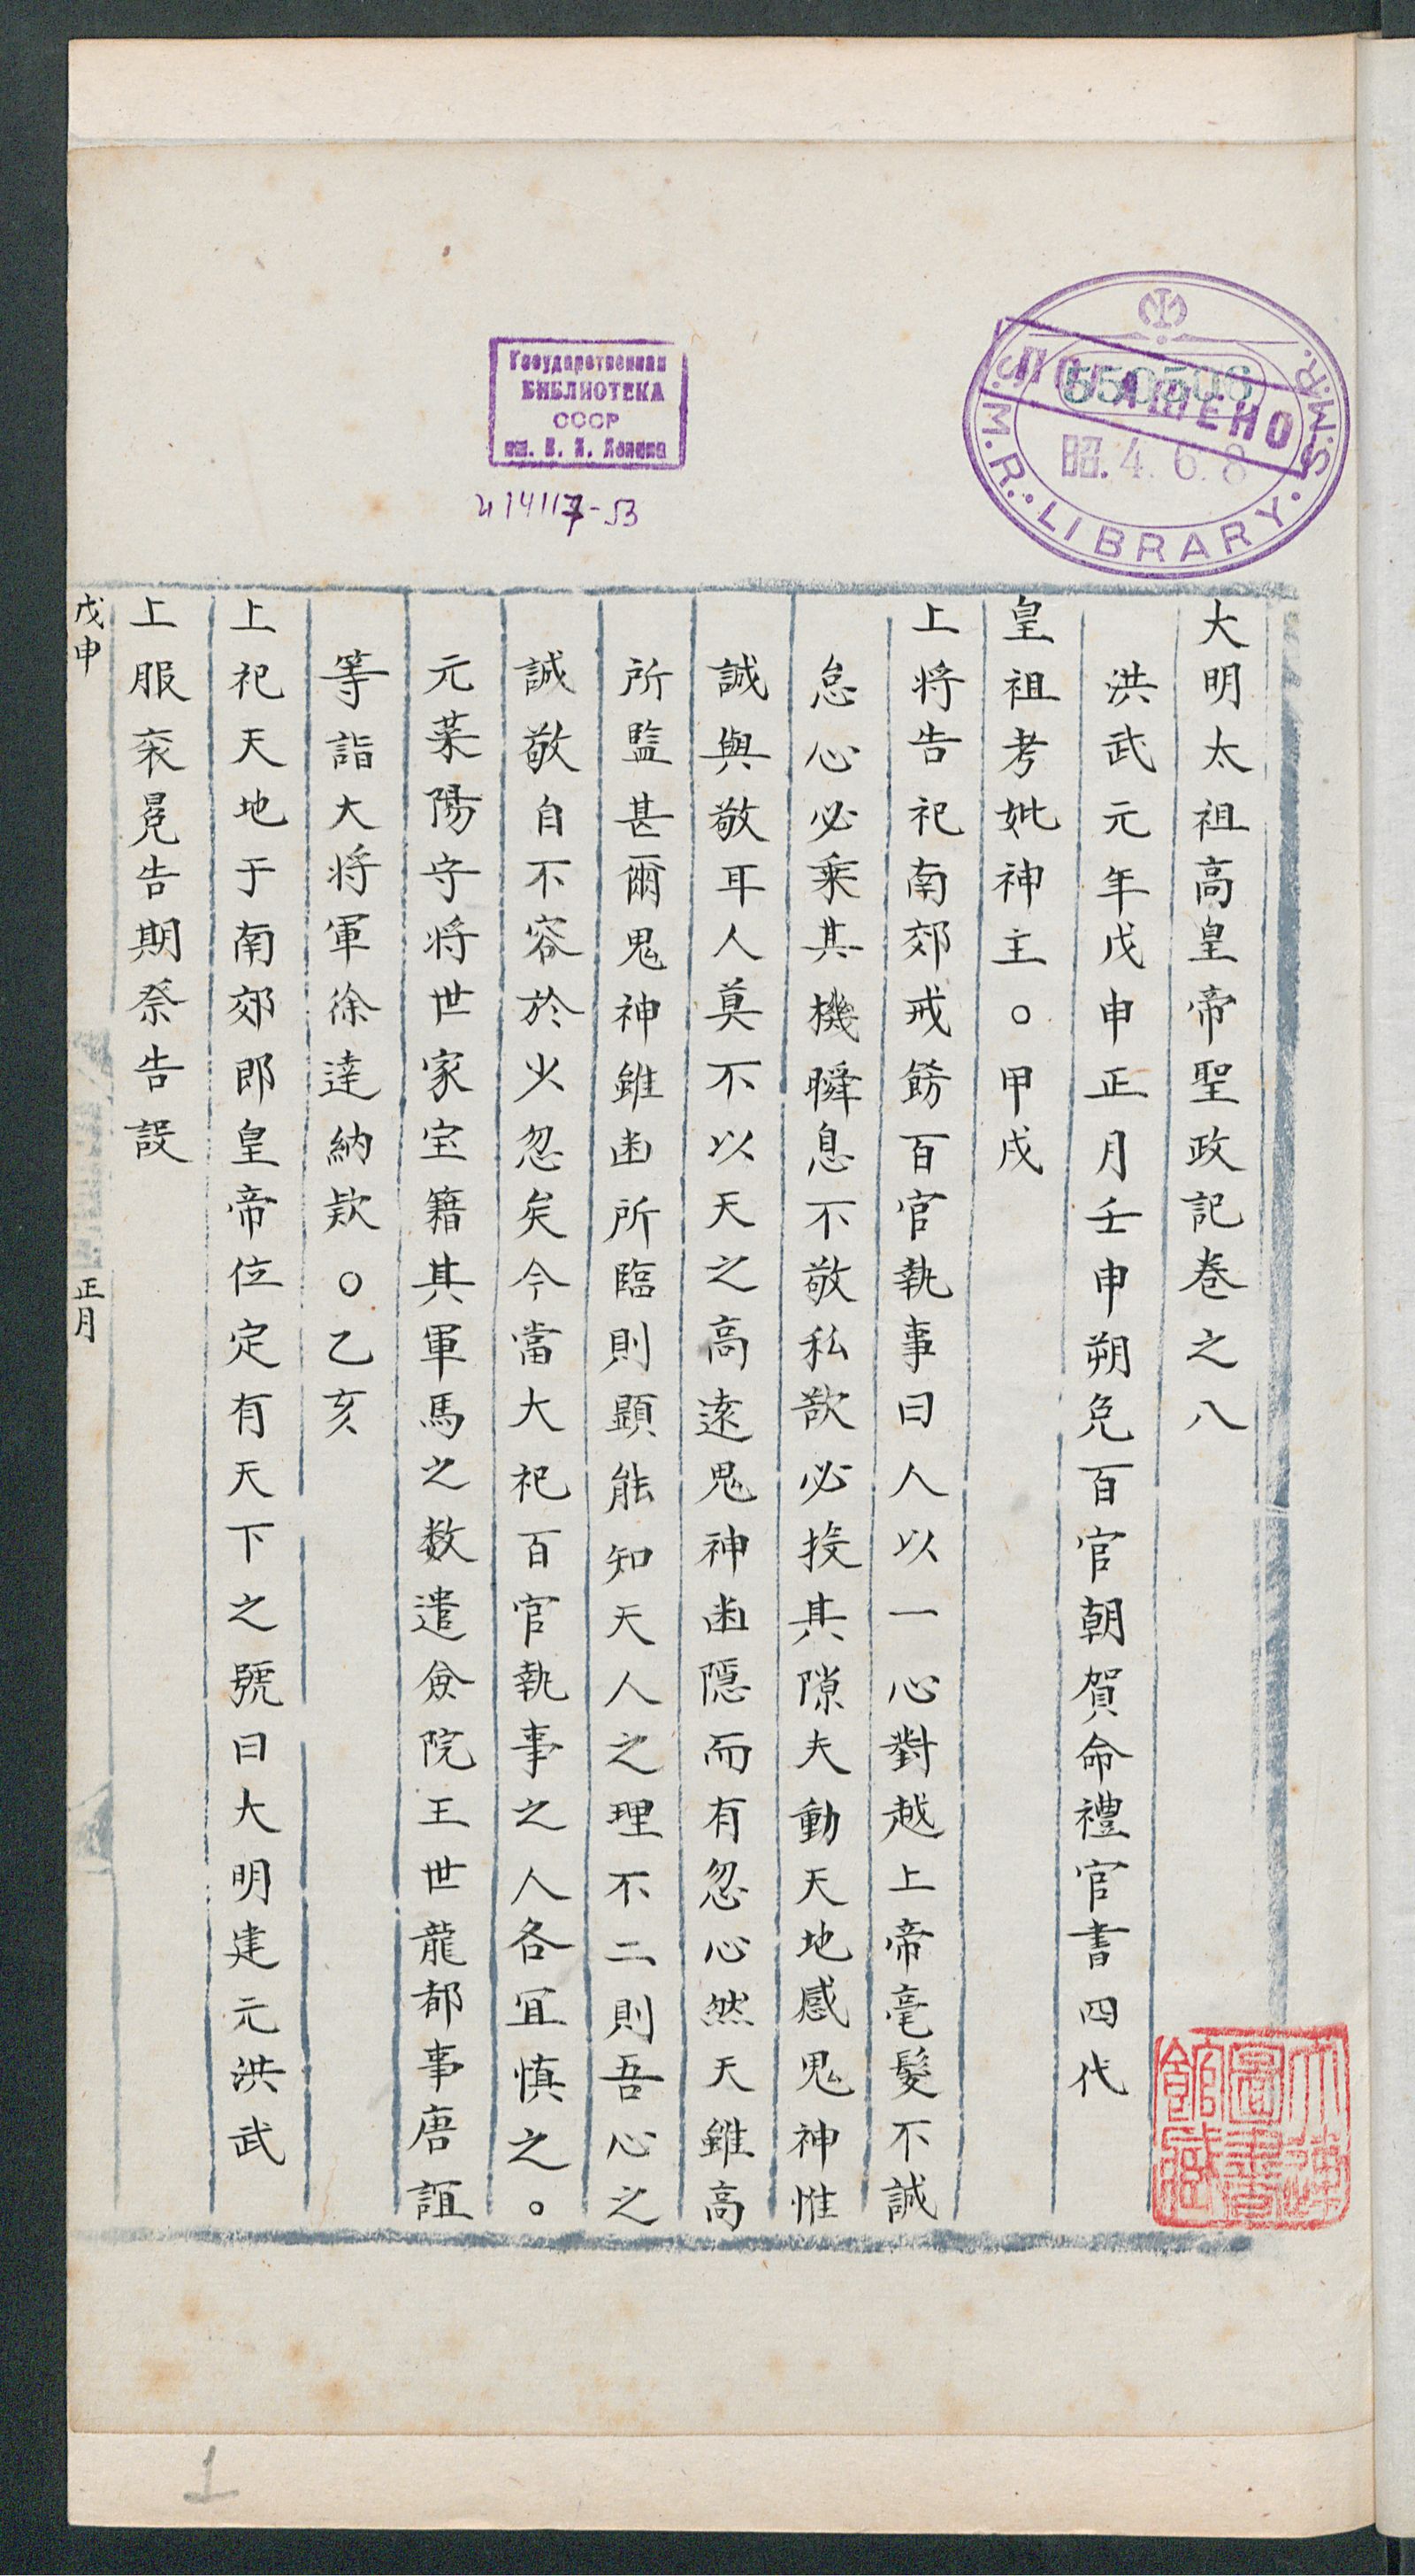 大明太祖高皇帝聖政記卷之八
洪武元年戊申正月壬申朔免百官朝賀命禮官書四代
皇祖考妣神主○甲戌
上将告祀南郊戒飭百官執事曰人以一心對越上帝毫髮不誠
怠心必乘其機瞬息不敬私欲必投其隙夫動天地感鬼神惟
誠與敬耳人莫不以天之高遠鬼神幽隱而有忽心然天雖高
所監甚爾鬼神雖幽所臨則顯能知天人之理不二則吾心之
誠敬自不容於少忽矣今當大祀百官執事之人各宜慎之○
元萊陽守将世家宝籍其軍馬之数遣僉院王世龍都事唐誼
等詣大将軍徐達納欵○乙亥
上祀天地于南郊郎皇帝位定有天下之號曰大明建元洪武
上服衮冕告期祭告設
戊申
正月
Государственная
БИБЛИОТЕКА
СССР
им. В. И. Ленина
и 14117-53
S.M.R. LIBRARY. S.M.R.
ПОГАШЕНО
昭.4.6.8
大連
圖書
館藏
1